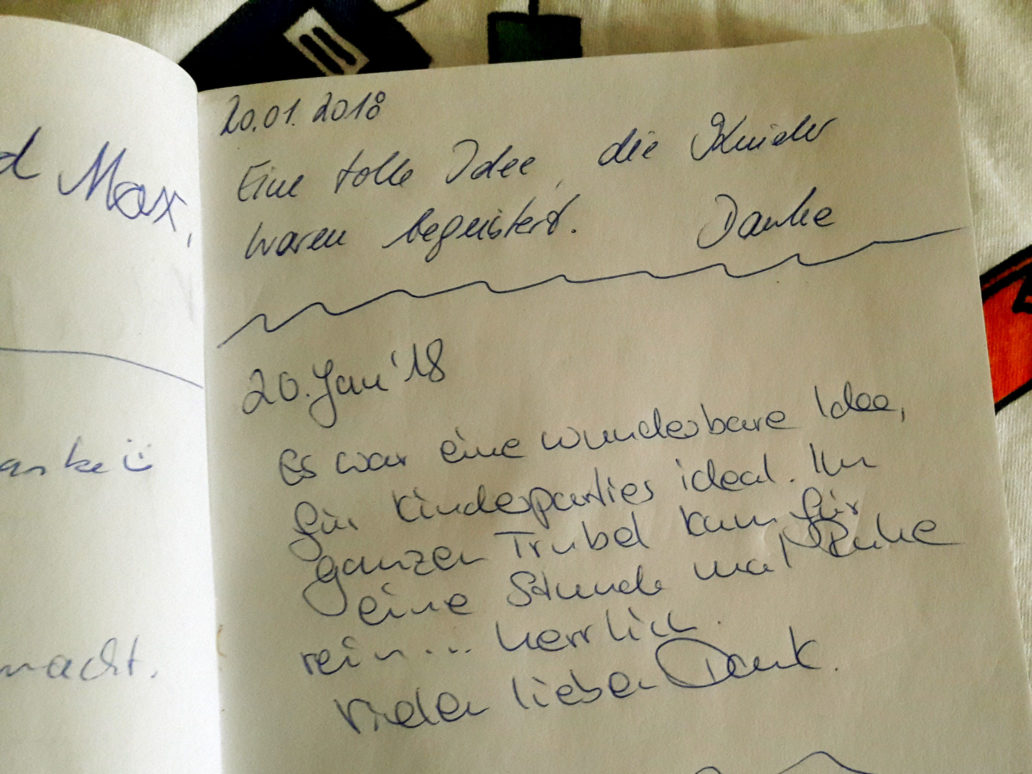 d Max,
anke ü
macht.
20.01.2018
Eine tolle Idee, die Kinder
waren begeistert. Danke
20. Jan '18
Es war eine wunderbare Idee,
für Kinderparties ideal. Im
ganzen Trubel kam für
eine Stunde mal Ruhe
rein... herrlich.
Vielen lieben Dank.